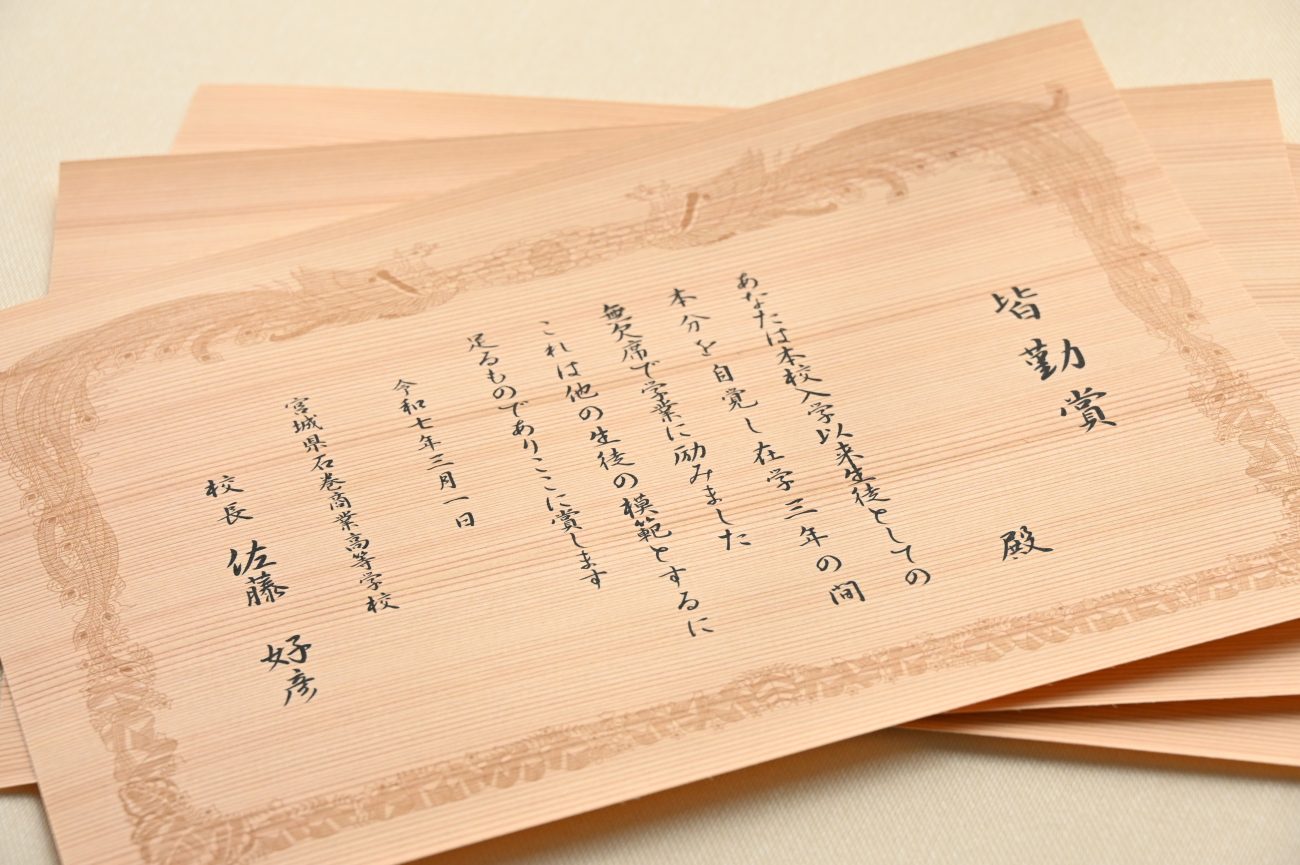 皆勤賞
殿
あなたは本校入学以来生徒としての
本分を自覚し在学三年の間
無欠席で学業に励みました
これは他の生徒の模範とするに
足るものでありここに賞します
令和七年三月一日
宮城県石巻商業高等学校
校長 佐藤 好彦